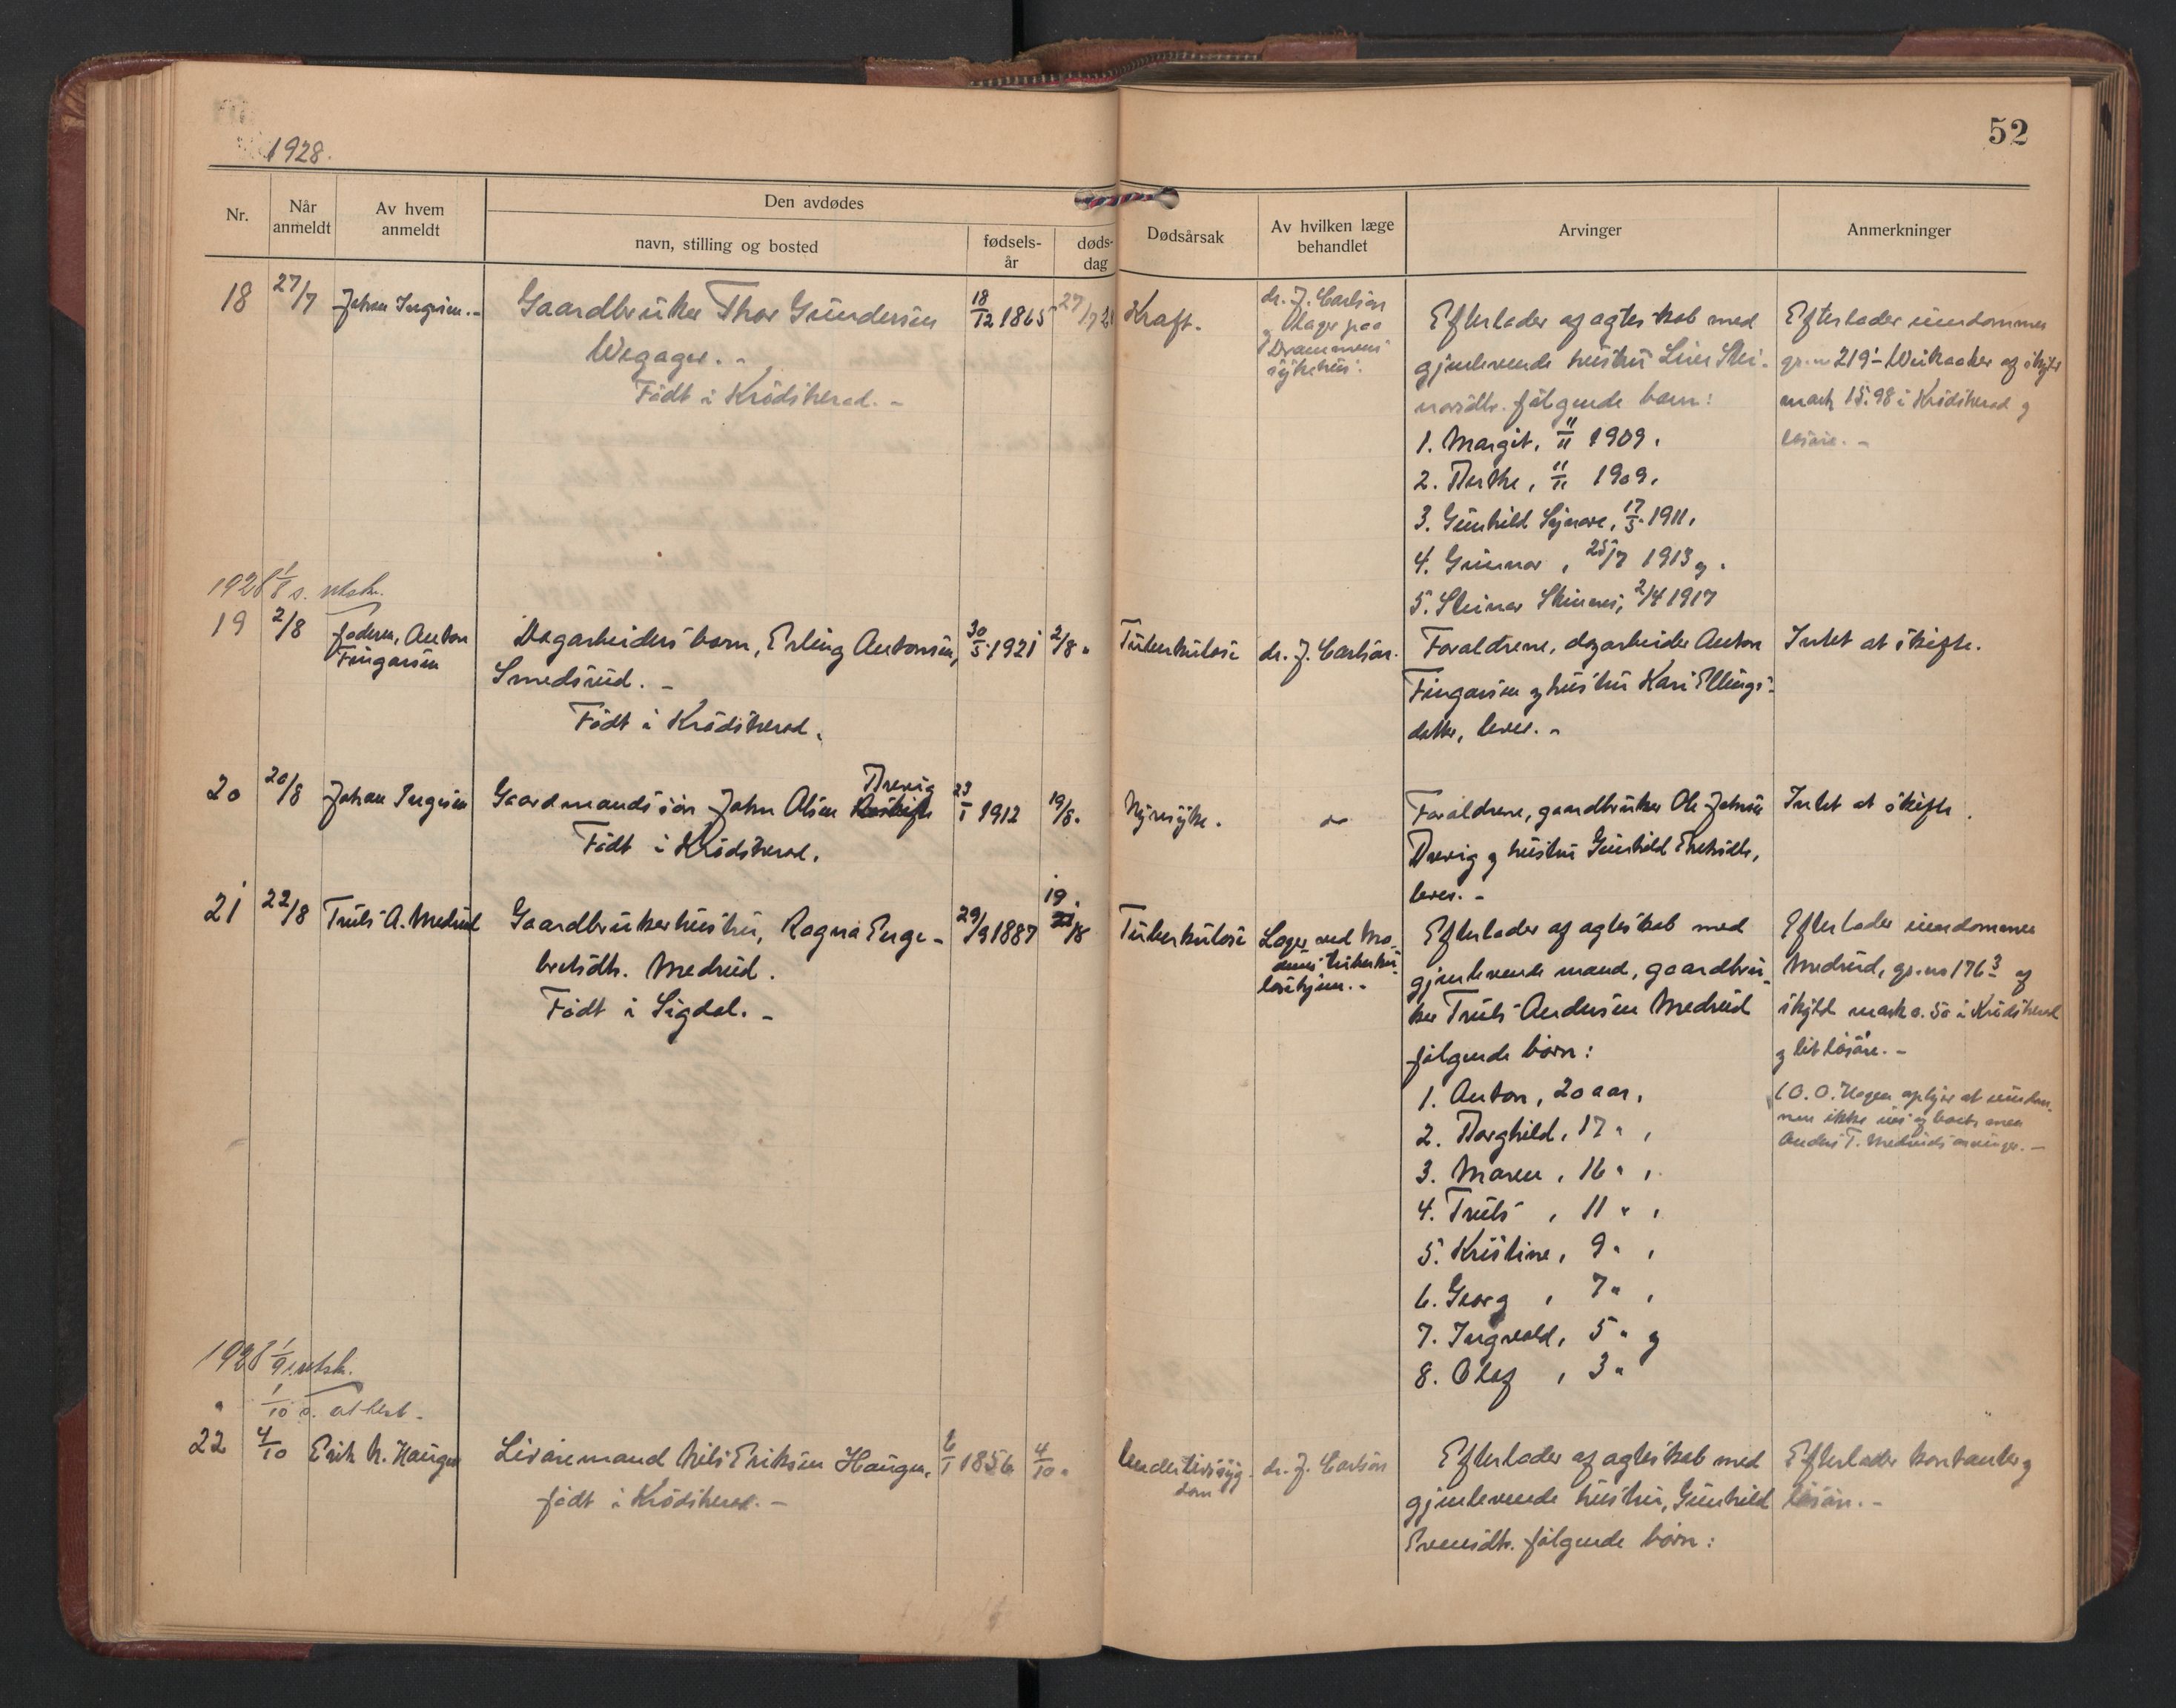 1928.
52
Nr.
Når anmeldt
Av hvem anmeldt
Den avdødes
navn, stilling og bosted
fødsels-år
døds-dag
Dødsårsak
Av hvilken læge behandlet
Arvinger
Anmerkninger
18 27/7 Johan Ingesen.-
Gaardbruker Thor Gundersen
Wegager.-
Født i Krødsherad.-
18/12 1865 27/7 28
Kraft.
dr. J. Carlsen
og læger paa
Drammens
sykehus.
Efterlader af ægteskab med
gjenlevende hustru
følgende barn:
1. Margit, 11/11 1909,
2. Berthe, 11/11 1909,
3. Gunhild Signore, 17/5 1911,
4. Gunnar, 25/7 1913 og
5. Steinar Steinarsi, 2/4 1917
Efterlader eiendommen
gr.nr 219 af skyld
mark 15.98 i Krødsherad og
løsøre.-
1928 1/8 s. utskr.
19 2/8 faderen, Anton
Fingarsen
Dagarbeiders barn, Erling Antonsen,
Smedsrud.-
Født i Krødsherad.
30/5 1921 2/8 "
Tuberkulose
dr. J. Carlsen.
Forældrene, dagarbeider Anton
Fingarsen og hustru Kari Ellings-
datter, lever.-
Intet at skifte.
20 20/8 Johan Ingesen
Gaardmandssøn John Olsen Brevig
Født i Krødsherad.
23/1 1912 19/8.
Nyresyke.
do
Forældrene, gaardbruker Ole Johnsen
Brevig og hustru Gunhild
lever.-
Intet at skifte.
21 22/8 Truls A. Medrud
Gaardbrukerhustru, Ragna Enge-
bretsdtr. Medrud.
Født i Sigdal.-
29/9 1887 19/8
Tuberkulose
Læger ved Mo-
dums tuberku-
losehjem.-
Efterlader af ægteskab med
gjenlevende mand, gaardbru-
ker Truls Andersen Medrud
følgende børn:
1. Anton, 20 aar,
2. Borghild, 17 " ,
3. Maren, 16 " ,
4. Truls, 11 " ,
5. Kristine, 9 " ,
6. Georg, 7 " ,
7. Ingvald, 5 " og
8. Olaf, 3 "
Efterlader eiendommen
Medrud, gr.no 176/3 af
skyld mark 0.50 i Krødsherad
og lit løsøre.-
(O. O. Hagen oplyser at eiendom-
men ikke
Anders T. Medruds arvinger.-
1928 1/9 s. utskr.
" 1/10 s. attest.
22 4/10 Erik N. Haugen
Livøremand Nils Eriksen Haugen,
født i Krødsherad.-
6/1 1856 4/10 "
Underlivssyg-
dom
dr. J. Carlsen
Efterlader af ægteskab med
gjenlevende hustru, Gunhild
Evensdtr. følgende børn:
Efterlader kontanter og
løsøre.-